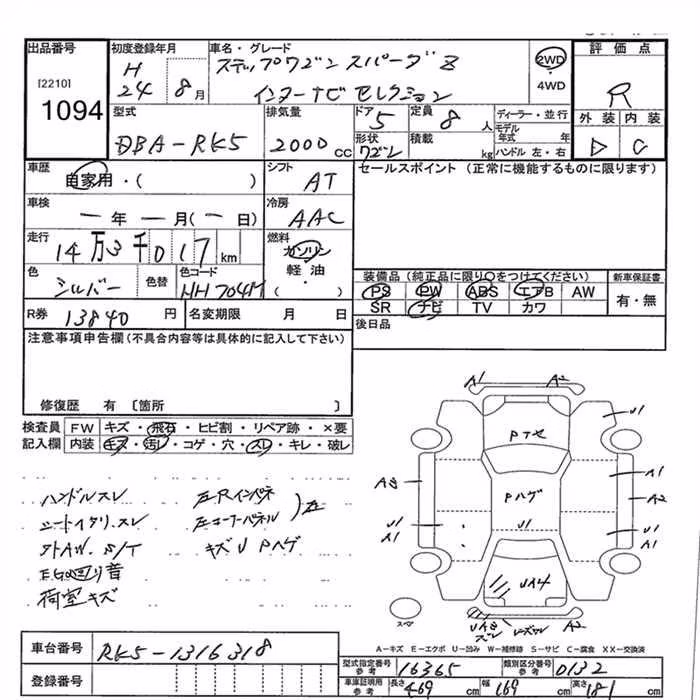 出品番号
[2210]
1094
初度登録年月
H 24 8月
車名・グレード
ステップワゴン スパーダ Z
インターナビ セレクション
2WD
4WD
評価点
R
外装 内装
D C
型式
DBA-RK5
排気量
2000 cc
ドア
5
定員
8人
形状
ワゴン
積載
kg
ディーラー・並行
モデル年式 年
ハンドル 左・右
車歴
自家用・( )
シフト
AT
セールスポイント (正常に機能するものに限ります)
車検
ー年ー月(ー日)
冷房
AAC
走行
14万3千017km
燃料
ガソリン
軽油・
( )
色
シルバー
色替
色コード
NH704M
装備品(純正品に限り○をつけてください)
新車保証書
PS PW ABS エアB AW
SR ナビ TV カワ
有・無
R券 13840 円
名変期限 月 日
後日品
注意事項申告欄(不具合内容等は具体的に記入して下さい)
修復歴 有〔箇所 〕
検査員 FW キズ・飛石・ヒビ割・リペア跡・×要
記入欄 内装 キズ・汚レ・コゲ・穴・スレ・キレ・破レ
ハンドルスレ
シートイタリ、スレ
外AW、S/T
EG回り音
荷室キズ
左Rインパネ
左コーナーパネル
キズU Pハゲ
A1 A2
U1
Pハゲ
A3
A1
A2
U1
U1
A1
U1
A1
UA4
UA3
A2
スペア
A-キズ E-エクボ U-凹み W-補修跡 S-サビ C-腐食 XX-交換済
車台番号
RK5-1316318
登録番号
型式指定番号 参考 16365
類別区分番号 参考 0132
車庫証明用 参考 長さ 469cm 幅 169cm 高さ 181cm